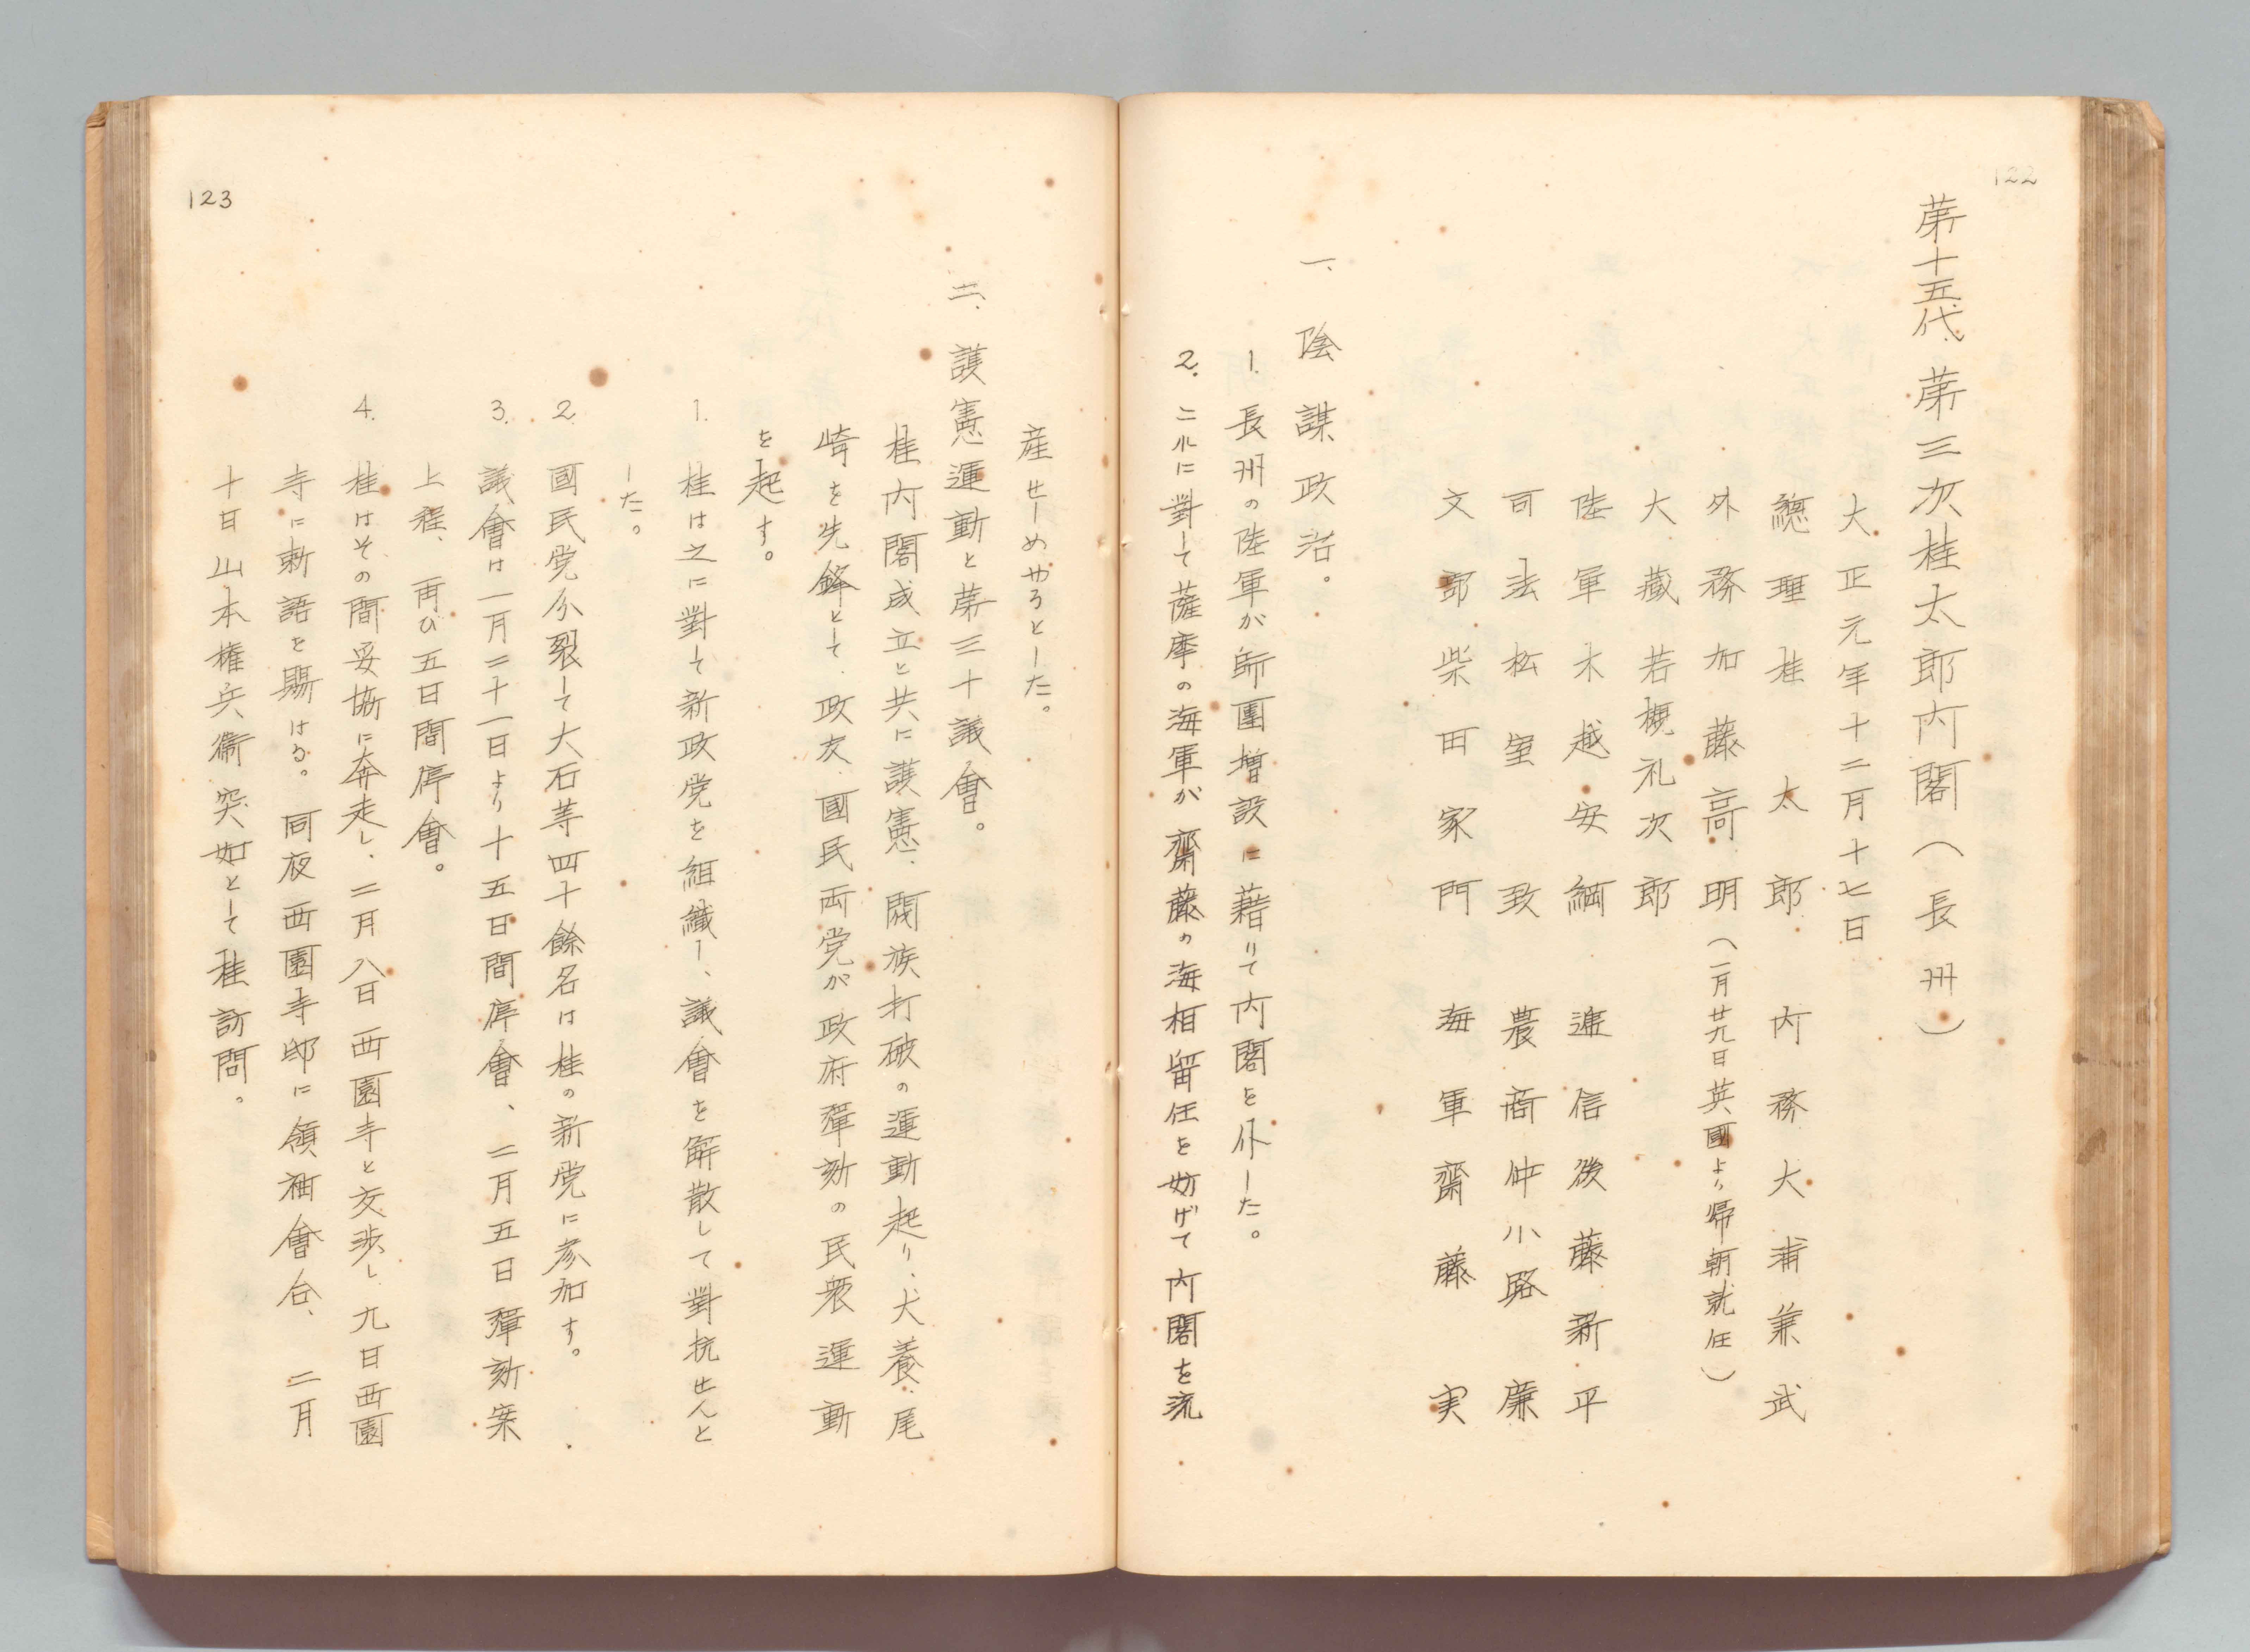 122
第十五代、第三次桂太郎内閣(長州)
大正元年十二月十七日
總理 桂太郎 内務 大浦兼武
外務 加藤高明(一月廿九日英國より帰朝就任)
大藏 若槻礼次郎
陸軍 木越安綱 逓信 後藤新平
司法 松室致 農商 仲小路廉
文部 柴田家門 海軍 齋藤実
一、陰謀政治。
1. 長州の陸軍が師團増設に藉りて内閣を仆した。
2. これに對して薩摩の海軍が齋藤の海相留任を妨げて内閣を流
産せしめやうとした。
二、護憲運動と第三十議會。
桂内閣成立と共に護憲、閥族打破の運動起り、犬養、尾
崎を先鋒として、政友、國民両党が政府彈劾の民衆運動
を起す。
1. 桂は之に對して新政党を組織し、議會を解散して對抗せんと
した。
2. 國民党分裂して大石等四十餘名は桂の新党に参加す。
3. 議會は一月二十一日より十五日間停會、二月五日彈劾案
上程、再び五日間停會。
4. 桂はその間妥協に奔走し、二月八日西園寺と交渉し、九日西園
寺に勅語を賜はる。同夜西園寺邸に領袖會合、二月
十日山本権兵衞突如として桂訪問。
123